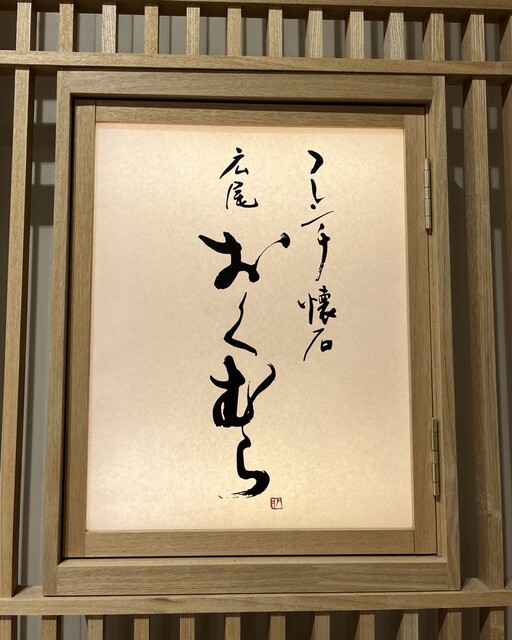 フレンチ懐石
広尾
おくむら